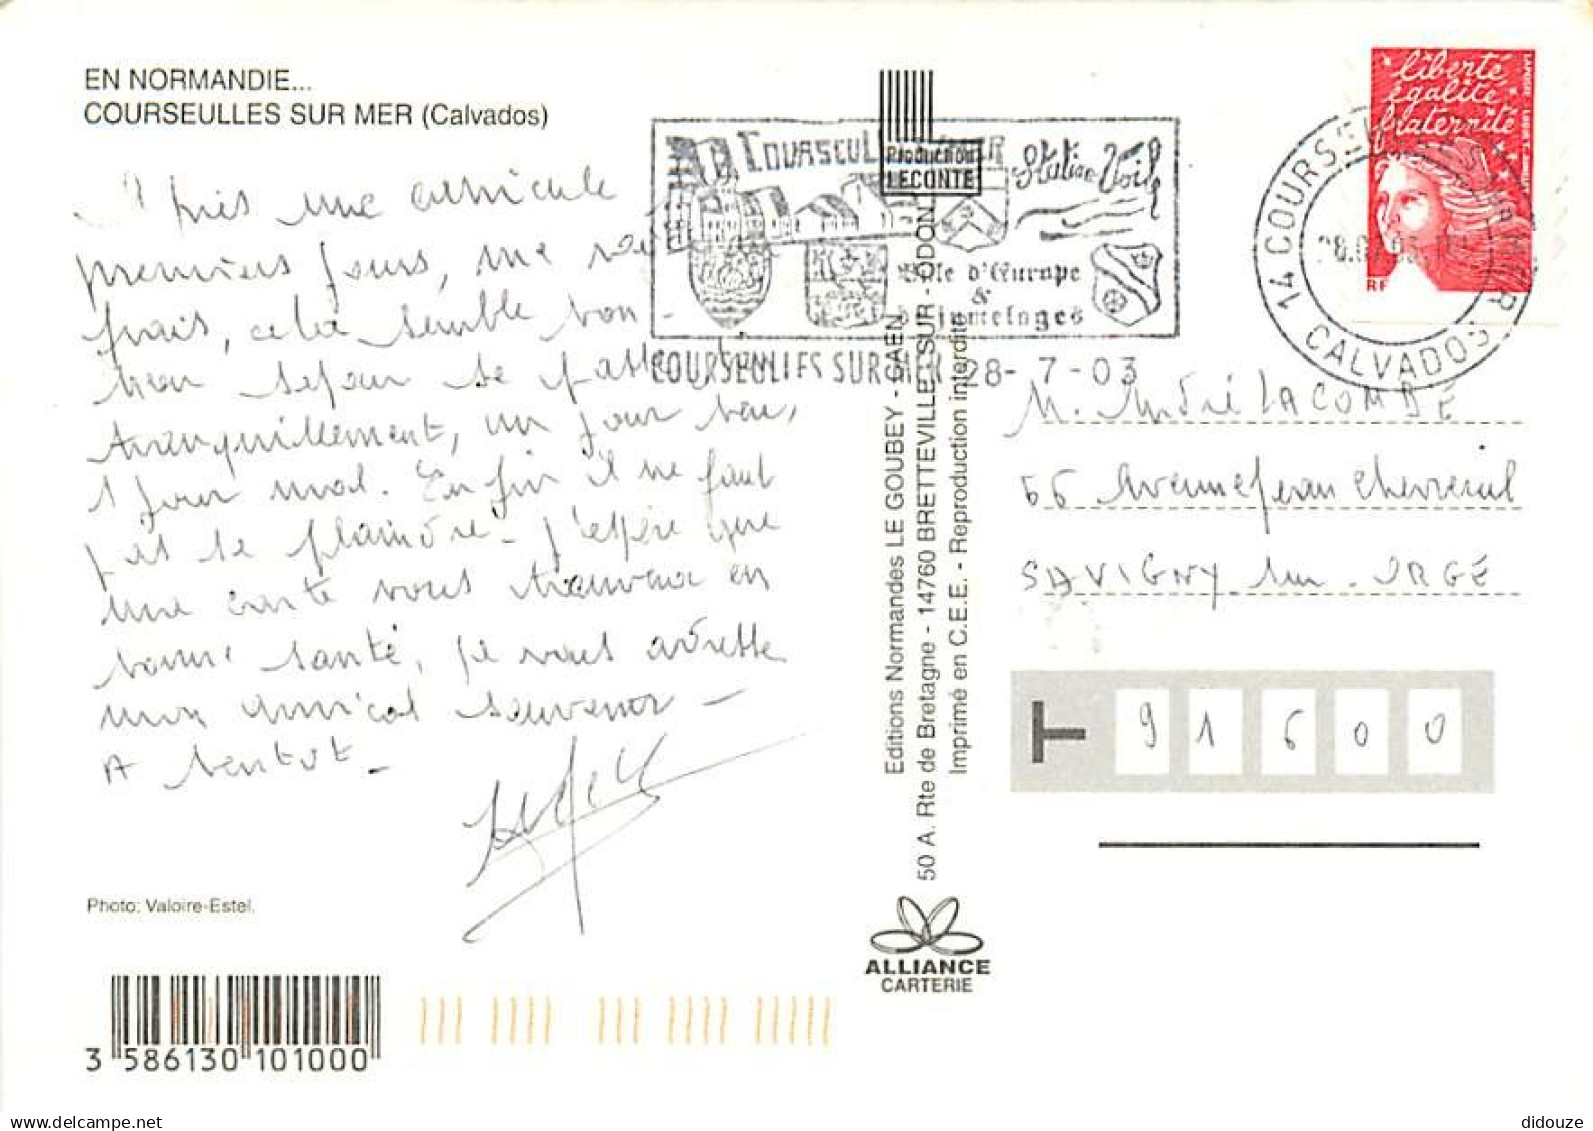 EN NORMANDIE...
COURSEULLES SUR MER (Calvados)
Après une canicule
premiers jours, une
frais, cela semble bon-
mon séjour se passe
tranquillement, un jour bien,
1 jour mal. Enfin il ne faut
pas se plaindre - J'espère que
une carte vous trouvera en
bonne santé, je vous adresse
mon amical souvenir -
A bientôt -
Photo: Valoire-Estel.
3 586130 101000
Production
LECONTE
Station Voile
Ville d'Europe
&
de jumelages
COURSEULLES SUR MER 28-7-03
Editions Normandes LE GOUBEY - CAEN
50 A. Rte de Bretagne - 14760 BRETTEVILLE - SUR - ODON
Imprimé en C.E.E. - Reproduction interdite
ALLIANCE
CARTERIE
liberté
égalité
fraternité
RF
14 COURSEULLES SUR MER
CALVADOS
M. André LACOMBE
66 Avenue Jean Chevreul
SAVIGNY sur ORGE
T 9 1 6 0 0
didouze